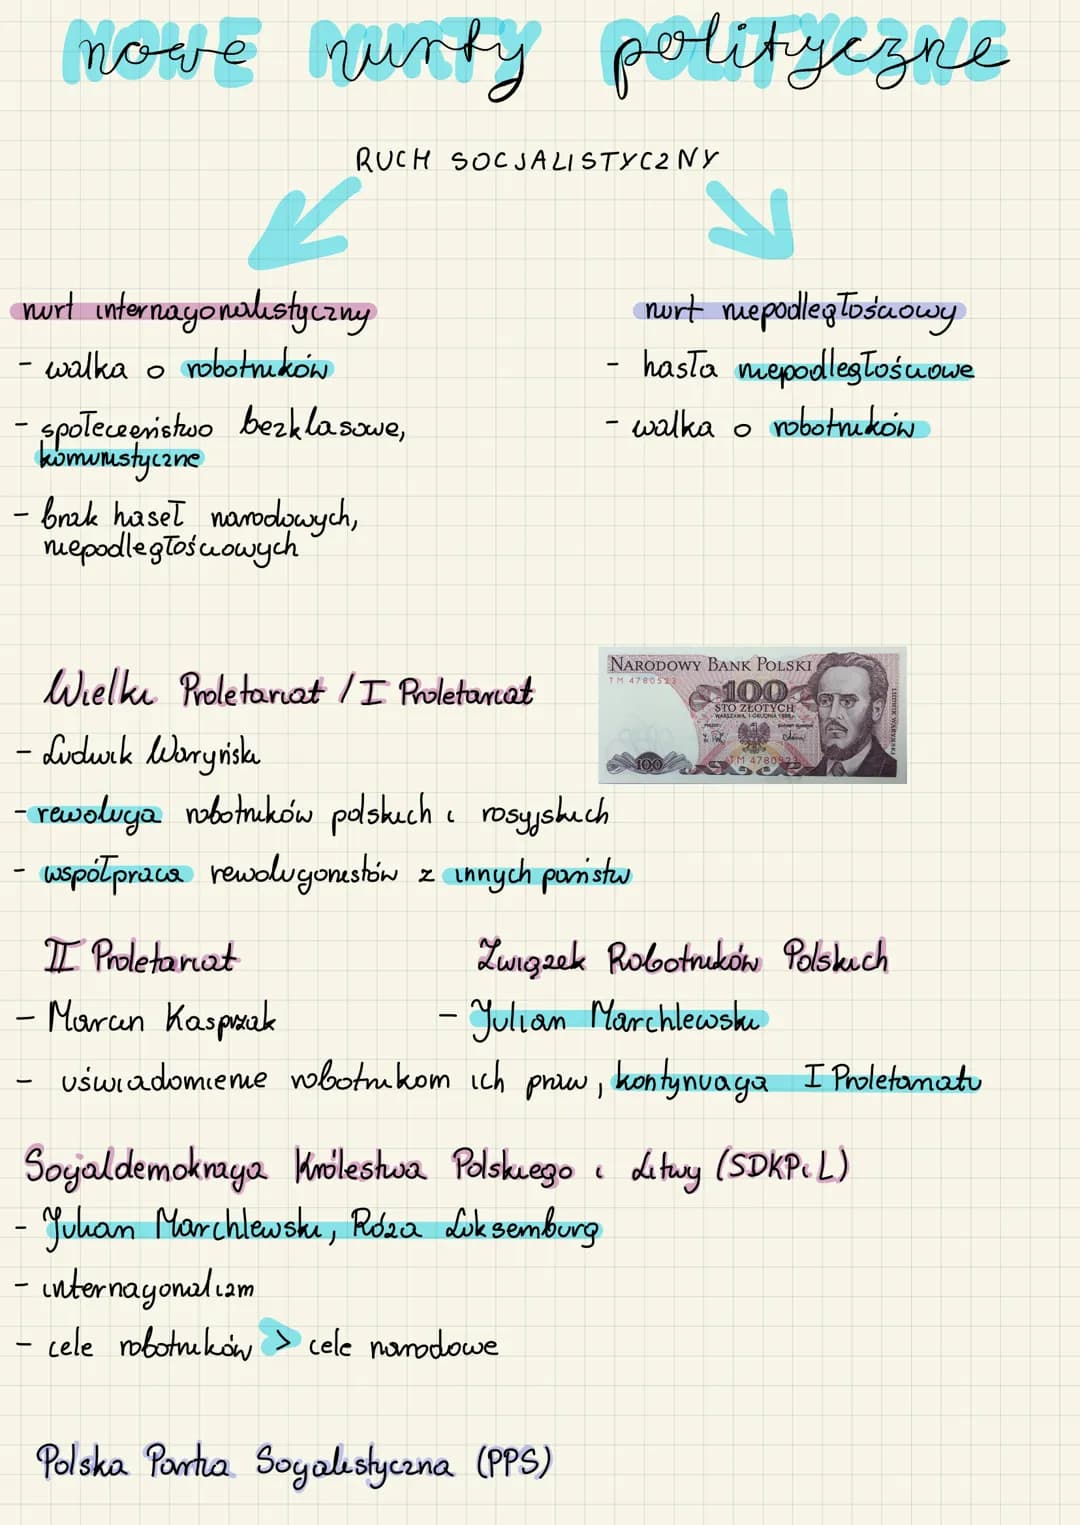 nowe nurty polityczne
RUCH SOCJALISTYCZNY
nurt internacjonalistyczny
nurt niepodległościowy
- walka o robotników
- hasła niepodległościowe
- społeczeństwo bezklasowe,
komunistyczne
- walka o robotników
- brak haseł narodowych,
niepodległościowych
Wielki Proletariat / I Proletariat
NARODOWY BANK POLSKI
TM 4780523
100
STO ZŁOTYCH
WARSZAWA, 1 GRUDNIA 1988 r.
LUDWIK WARYŃSKI
100
TM 4780523
- Ludwik Waryński
- rewolucja robotników polskich i rosyjskich
- współpraca rewolucjonistów z innych państw
II Proletariat
Związek Robotników Polskich
- Marcin Kasprzak
- Julian Marchlewski
- uświadomienie robotnikom ich praw, kontynuacja I Proletariatu
Socjaldemokracja Królestwa Polskiego i Litwy (SDKPiL)
- Julian Marchlewski, Róża Luksemburg
- internacjonalizm
- cele robotników > cele narodowe
Polska Partia Socjalistyczna (PPS)